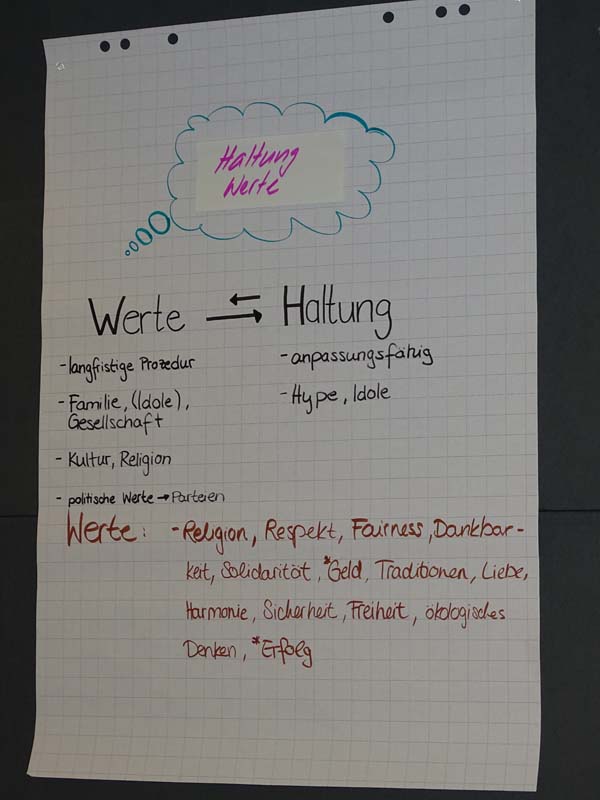 Haltung
Werte
Werte ⇄ Haltung
- langfristige Prozedur
- Familie, (Idole),
Gesellschaft
- Kultur, Religion
- politische Werte → Parteien
- anpassungsfähig
- Hype, Idole
Werte: - Religion, Respekt, Fairness, Dankbar-
keit, Solidarität, *Geld, Traditionen, Liebe,
Harmonie, Sicherheit, Freiheit, ökologisches
Denken, *Erfolg